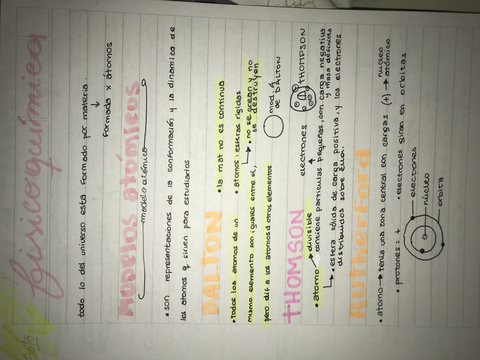 fisicoquímica
todo lo del universo está formado por materia.
formado x átomos
MODELOS ATÓMICOS
modelo atómico
• son representaciones de la conformación y la dinamica de
los atomos q sirven para estudiarlos
DALTON
• la mat no es continua
• todos los atomos de un
• atomos: esferas rigidas
mismo elemento son iguales entre él,
→ • no se crean y no
se destruyen
pero dif a los atomos d otros elementos
mod. A
de DALTON
THOMSON
electrones
THOMPSON
• atomo → divisible
contiene particulas pequeñas, con carga negativa
y masa definida
→ • esfera sólida de carga positiva, y los electrones
distribuidos sobre ella.
RUTHERFORD
• atomo → tenía una zona central con cargas (+) → núcleo
atómico
• protones = +
• electrones giran en orbitas
electrones
núcleo
orbita